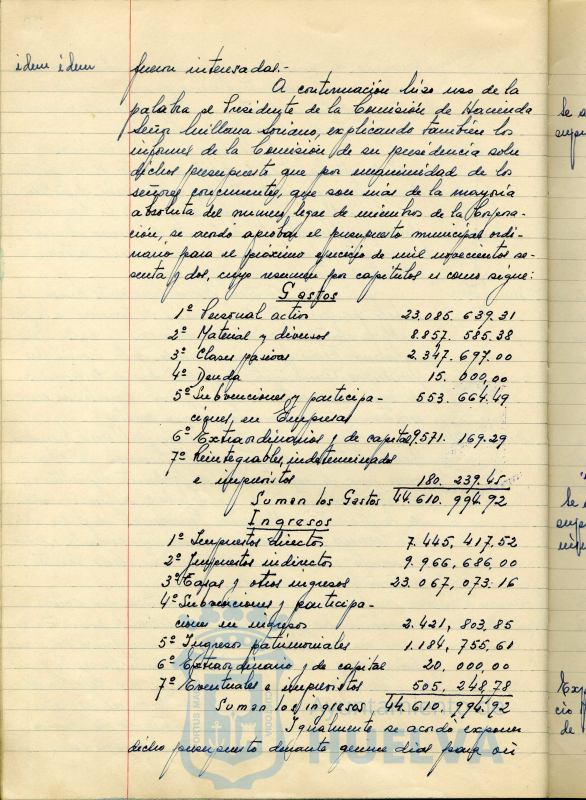 idem idem
fueron interesadas.-
A continuación hizo uso de la
palabra el Presidente de la Comisión de Hacienda
Señor Soriano, explicando también los
informes de la Comisión de su presidencia sobre
dichos presupuesto que por unanimidad de los
señores concurrentes, que son más de la mayoría
absoluta del numero legar de miembros de la Corpora-
ción, se acordó aprobar el presupuesto municipar ordi-
nario para el próximo ejercicio de mil novecientos se-
senta y dos, cuyo resumen por capítulos es como sigue:
Gastos
1º Personal activo 23.085.639.31
2º Material y diversos 8.857.585.38
3º Clases pasivas 2.347.697.00
4º Deuda 15.000,00
5º Subvenciones y participa- 553.664.49
ciones, en Empresas
6º Extraordinarios y de capital 9.571.169.29
7º Reintegrables, indeterminados
e imprevistos 180.239.45
Suman los Gastos 44.610.994.92
Ingresos
1º Impuestos directos 7.445,417,52
2º Impuestos indirectos 9.966,686,00
3º Tasas y otros ingresos 23.067,073.16
4º Subvenciones y participa-
ciones en ingresos 2.421,803,85
5º Ingresos patrimoniales 1.184,755,61
6º Extraordinario y de capital 20,000,00
7º Eventuales e imprevistos 505,248,78
Suman los ingresos 44.610,994.92
Igualmente se acordó exponer
dicho presupuesto durante quince días para oir
HUELVA